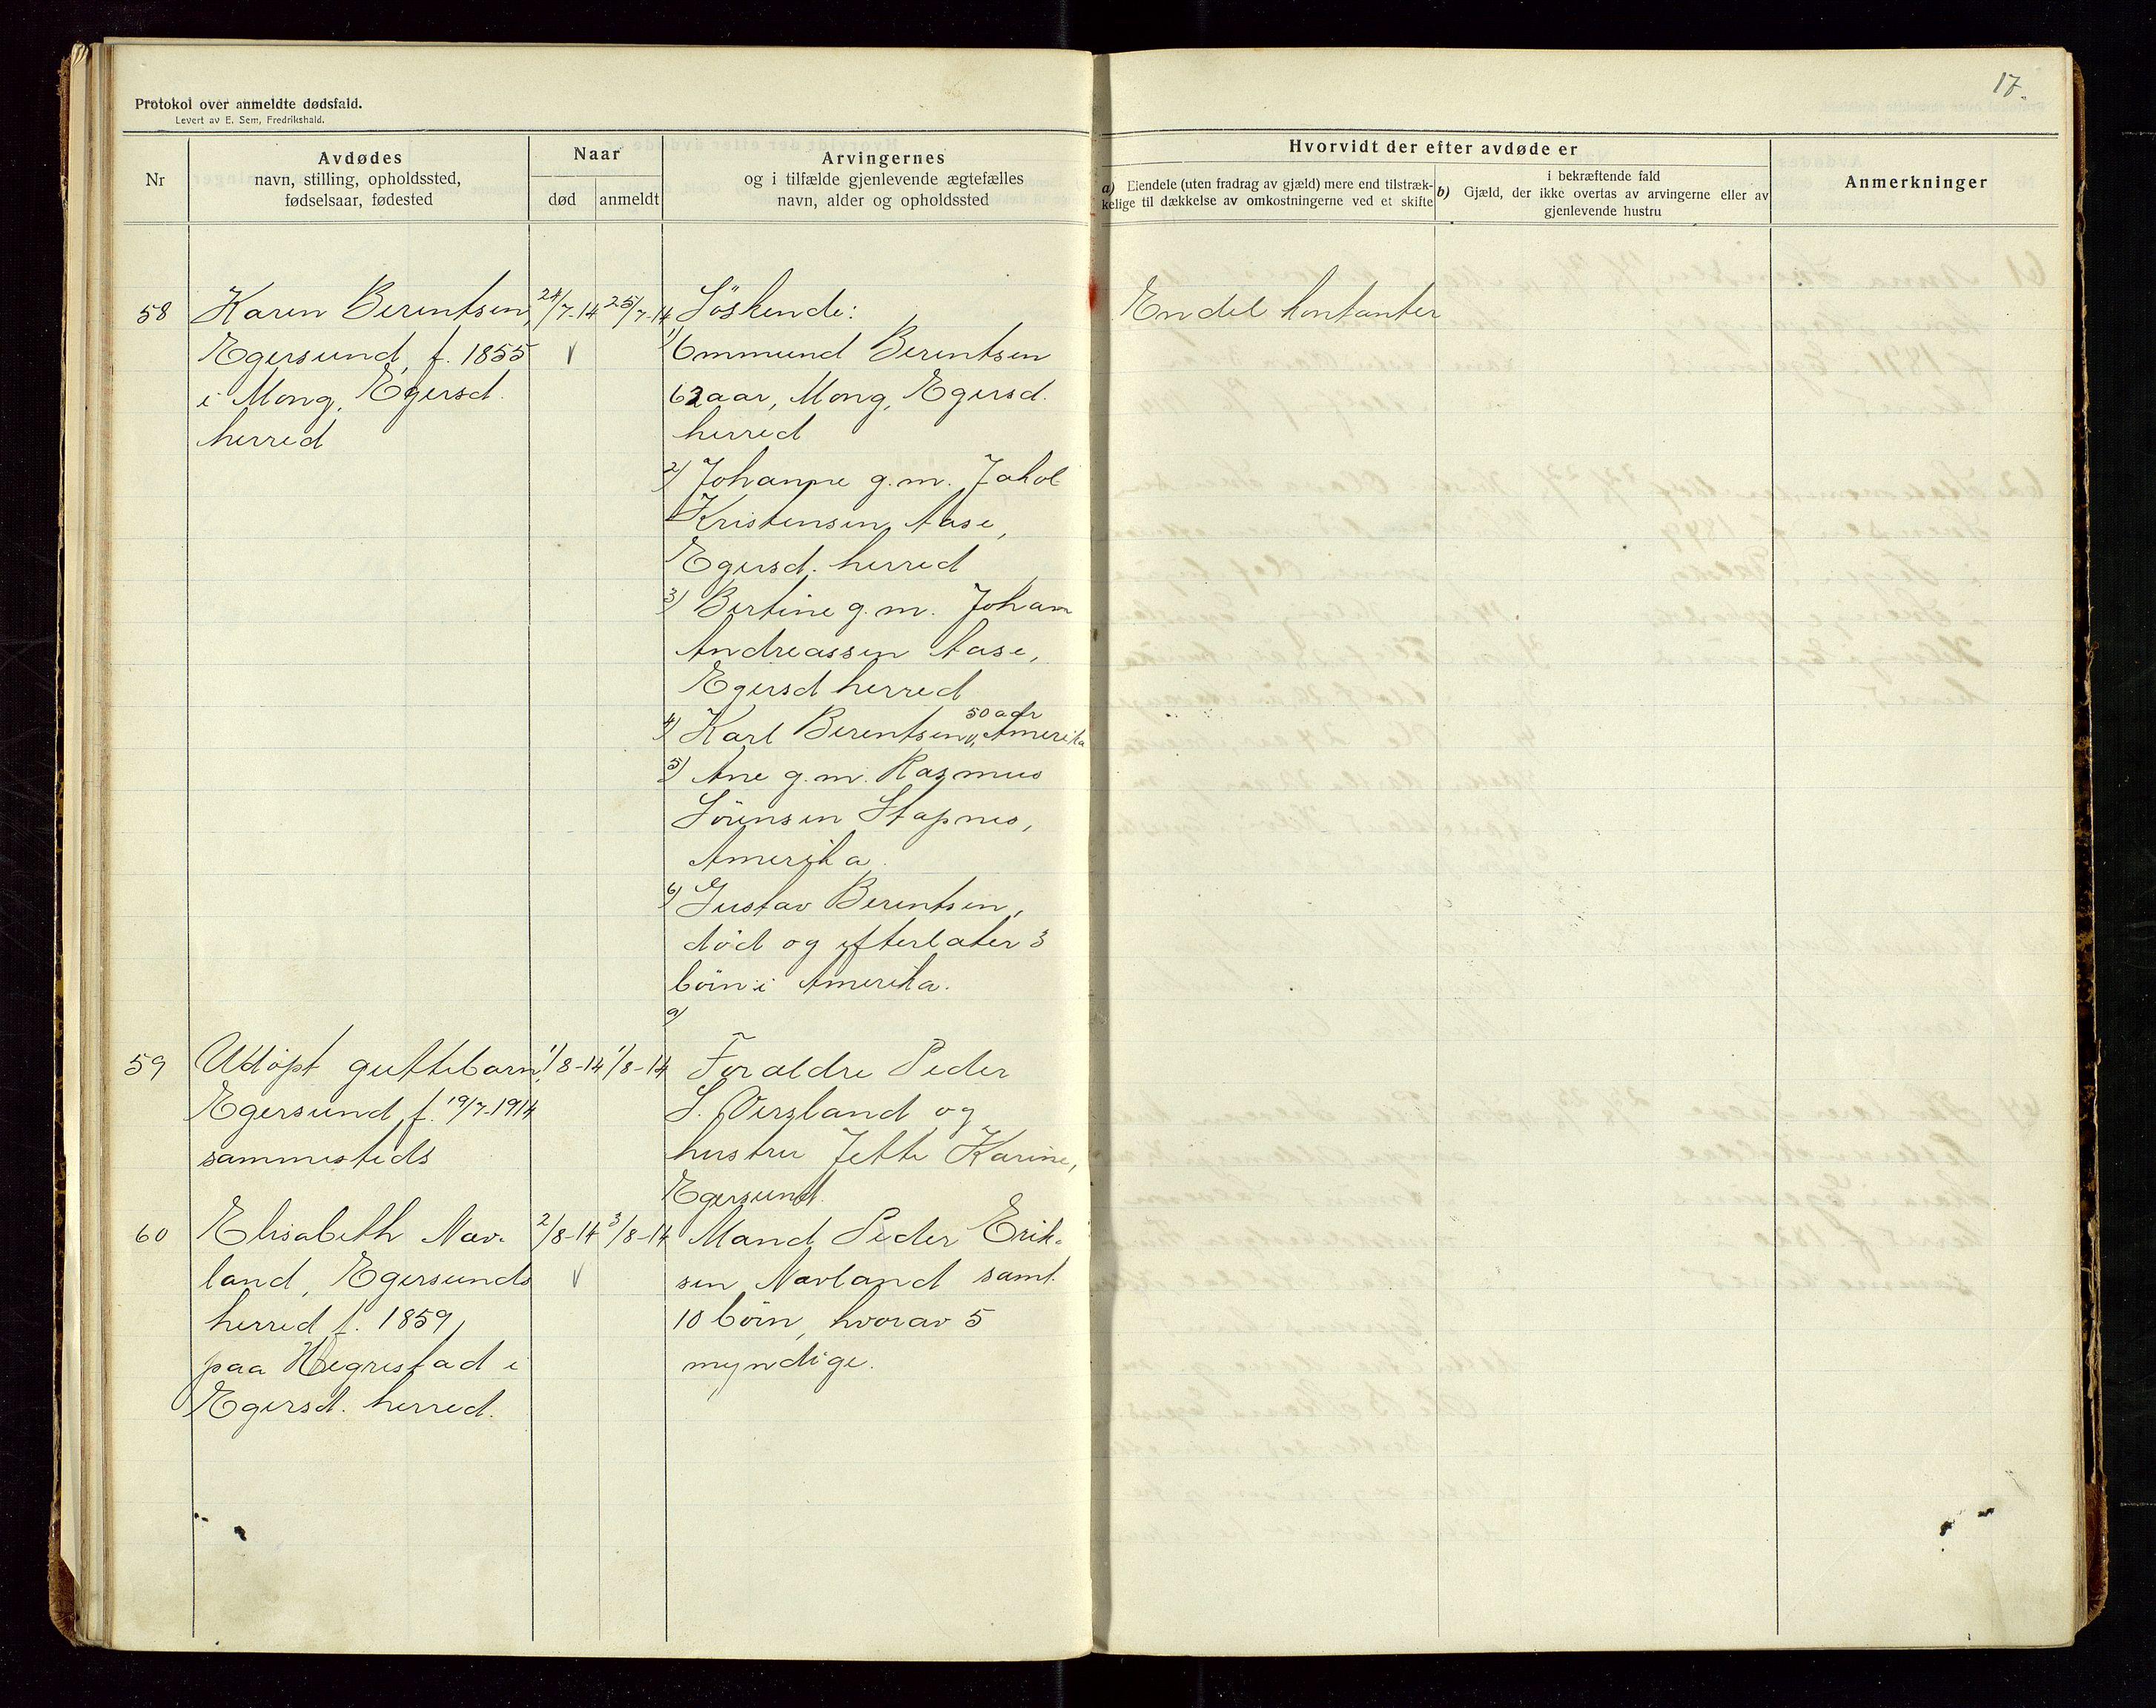 Protokol over anmeldte dødsfald.
Levert av E. Sem, Fredrikshald.
17.
Nr
Avdødes
navn, stilling, opholdssted,
fødselsaar, fødested
Naar
død
anmeldt
Arvingernes
og i tilfælde gjenlevende ægtefælles
navn, alder og opholdssted
Hvorvidt der efter avdøde er
a) Eiendele (uten fradrag av gjæld) mere end tilstræk-
kelige til dækkelse av omkostningerne ved et skifte
i bekræftende fald
b) Gjæld, der ikke overtas av arvingerne eller av
gjenlevende hustru
Anmerkninger
58
Karen Berentsen,
Egersund, f. 1855
i Mong, Egersd.
herred
24/7-14
25/7-14
Söskende:
1) Ommund Berentsen
62 aar, Mong, Egersd.
herred
2) Johanne g.m. Jakob
Kristensen Aase,
Egersd. herred
3) Bertine g.m. Johan
Andreassen Aase,
Egersd herred
50 aar
4) Karl Berentsen, Amerika
5) Ane g.m. Rasmus
Sörensen Stapnes,
Amerika.
6) Gustav Berentsen,
död og efterlater 3
börn i Amerika.
Endel kontanter
59
Udöpt guttebarn,
Egersund, f. 19/7-1914
sammesteds
1/8-14
1/8-14
Foraldre Peder
S. Versland og
hustru Jette Karine,
Egersund.
60
Elisabeth Nav-
land, Egersunds
herred f. 1859,
paa Hegrestad i
Egersd. herred.
2/8-14
3/8-14
Mand Peder Erik-
sen Navland samt
10 börn, hvorav 5
myndige.